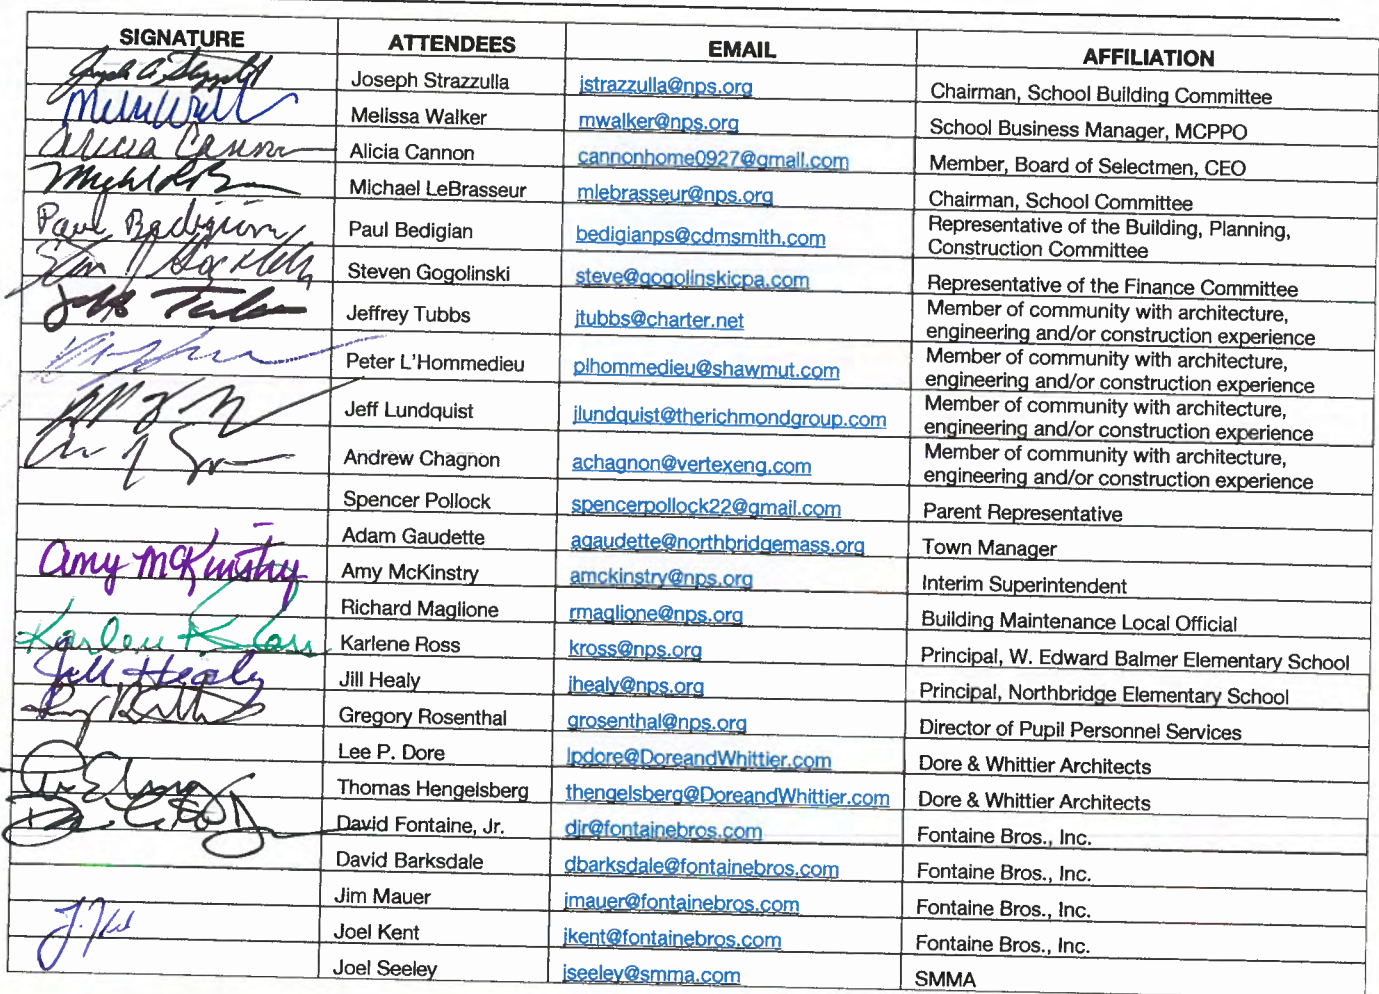 SIGNATURE ATTENDEES EMAIL AFFILIATION
Joseph Strazzulla jstrazzulla@nps.org Chairman, School Building Committee
Melissa Walker mwalker@nps.org School Business Manager, MCPPO
Alicia Cannon Alicia Cannon cannonhome0927@gmail.com Member, Board of Selectmen, CEO
Michael LeBrasseur mlebrasseur@nps.org Chairman, School Committee
Paul Bedigian Paul Bedigian bedigianps@cdmsmith.com Representative of the Building, Planning,
Construction Committee
Steven Gogolinski steve@gogolinskicpa.com Representative of the Finance Committee
Jeffrey Tubbs jtubbs@charter.net Member of community with architecture,
engineering and/or construction experience
Peter L'Hommedieu plhommedieu@shawmut.com Member of community with architecture,
engineering and/or construction experience
Jeff Lundquist jlundquist@therichmondgroup.com Member of community with architecture,
engineering and/or construction experience
Andrew Chagnon achagnon@vertexeng.com Member of community with architecture,
engineering and/or construction experience
Spencer Pollock spencerpollock22@gmail.com Parent Representative
Adam Gaudette agaudette@northbridgemass.org Town Manager
Amy McKinstry Amy McKinstry amckinstry@nps.org Interim Superintendent
Richard Maglione rmaglione@nps.org Building Maintenance Local Official
Karlene Ross kross@nps.org Principal, W. Edward Balmer Elementary School
Jill Healy Jill Healy jhealy@nps.org Principal, Northbridge Elementary School
Gregory Rosenthal grosenthal@nps.org Director of Pupil Personnel Services
Lee P. Dore lpdore@DoreandWhittier.com Dore & Whittier Architects
Thomas Hengelsberg thengelsberg@DoreandWhittier.com Dore & Whittier Architects
David Fontaine, Jr. djr@fontainebros.com Fontaine Bros., Inc.
David Barksdale dbarksdale@fontainebros.com Fontaine Bros., Inc.
Jim Mauer jmauer@fontainebros.com Fontaine Bros., Inc.
Joel Kent jkent@fontainebros.com Fontaine Bros., Inc.
Joel Seeley jseeley@smma.com SMMA